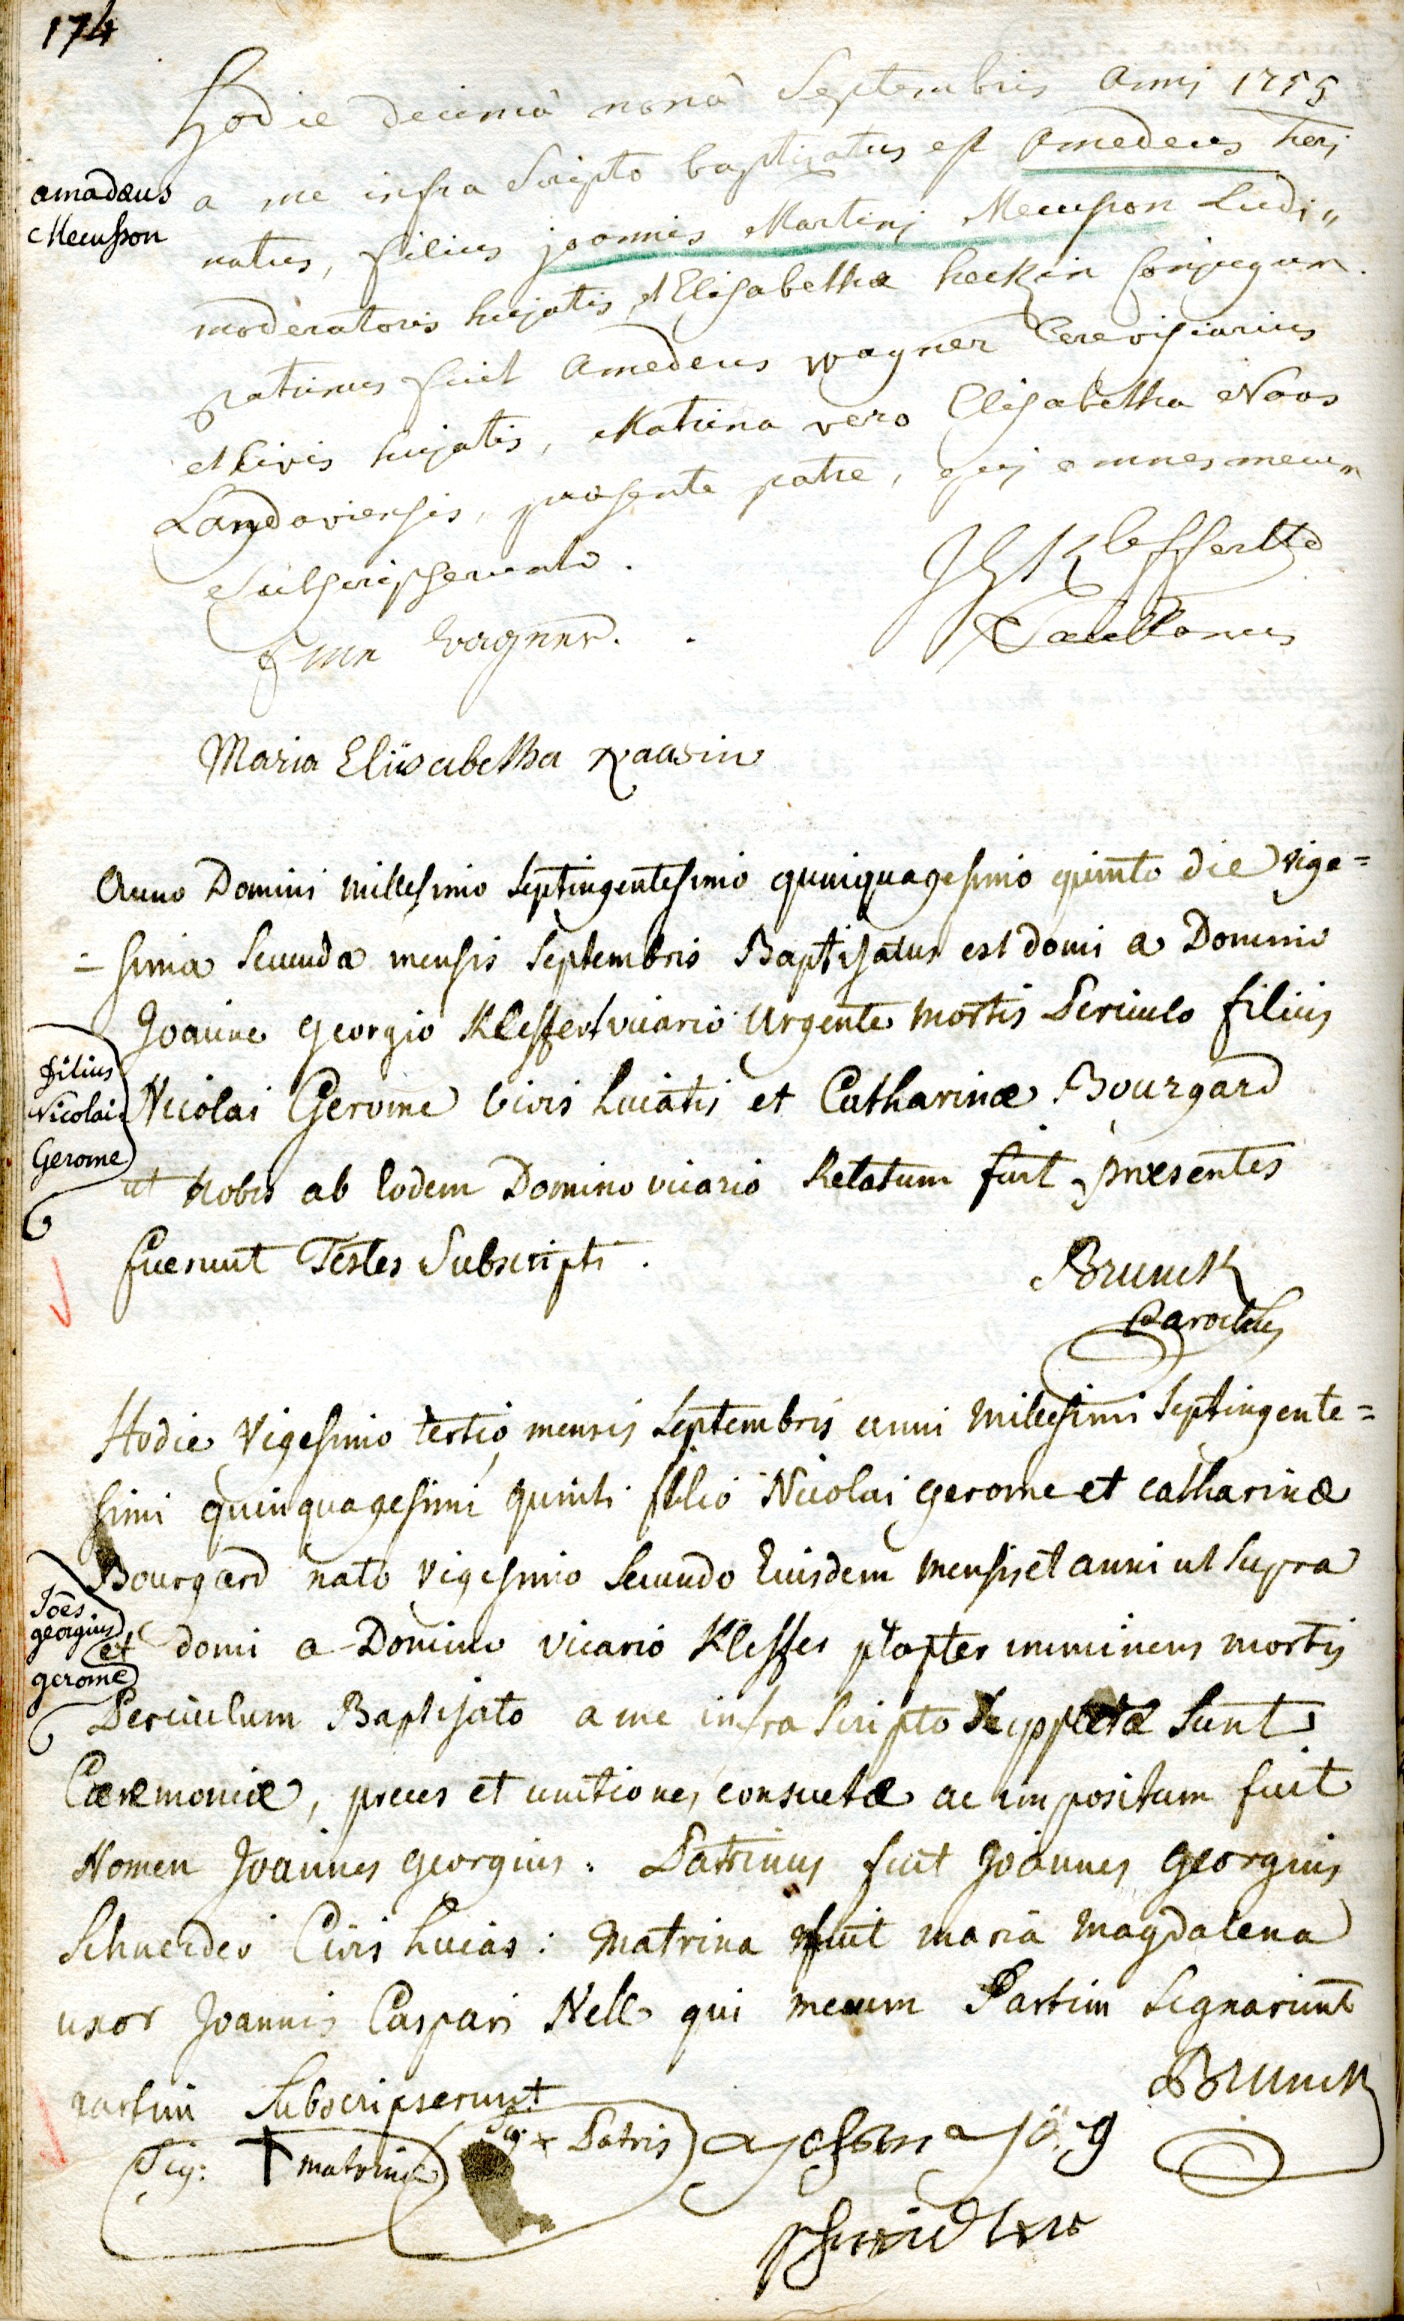 174
Hodie decimâ nonâ Septembris Anni 1755
amadæus
Mecusson
a me infra Scripto baptizatus est Amedeus heri
natus, filius joannis Martinj Mecusson Ludi„
moderatoris hujatis, et Elisabethæ heckin Conjugum.
patrinus fuit Amedeus wagner Cerevisiarius
et Civis hujatis, Matrina vero Elisabetha Naas
Landaviensis, præsente patre, qui omnes mecum
Subscripserunt.
JG Kleffert
wagner.
Maria Eliisabetha Naasin
Anno Domini millesimo Septingentesimo quinquagesimo quinto die vige=
=sima Secunda mensis Septembris Baptisatus est domi a Domino
Joanne Georgio Kleffert vicario Urgente mortis Periculo filius
filius
Nicolai
Gerome
Nicolai Gerome Civis huiatis et Catharinæ Bourgard
ut nobis ab Eodem Domino vicario Relatum fuit præsentes
fuerunt Testes Subscripti.
Brunck
Parochus
Hodie Vigesimo tertio mensis Septembris anni millesimi Septingente=
simi quinquagesimi quinti filio Nicolai gerome et catharinæ
Bourgard nato vigesimo Secundo Eiusdem mensis et anni ut Supra
Joës
georgius
gerome
et domi a Domino vicario Kleffer propter imminens mortis
Periculum Baptisato a me infra Scripto Suppletæ Sunt
Cæremoniæ, preces et unctiones consuetæ ac impositum fuit
Nomen Joannes georgius. Patrinus fuit Joannes Georgius
Schneider Civis huias: matrina fuit maria magdalena
uxor Joannis Caspari Nell qui mecum Partim Signarunt
partim Subscripserunt
Brunck
Sig: † matrinæ
Sig. x Patris